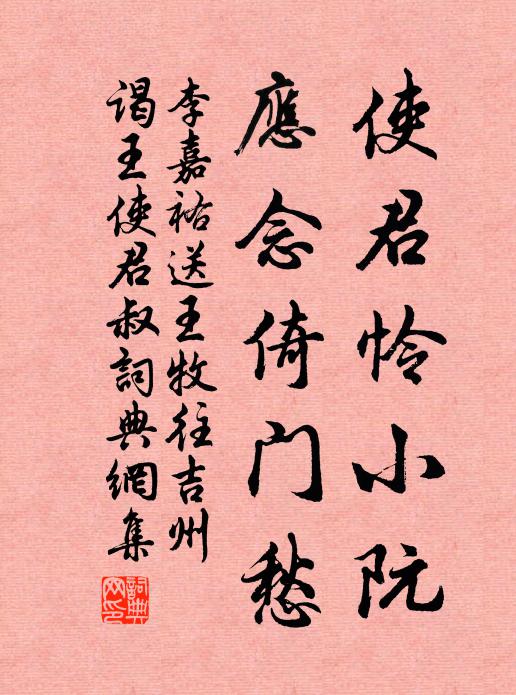 使君怜小阮
應念倚门愁
李嘉祐送王牧往吉州
谒王使君叔詞典網集
詞典網印